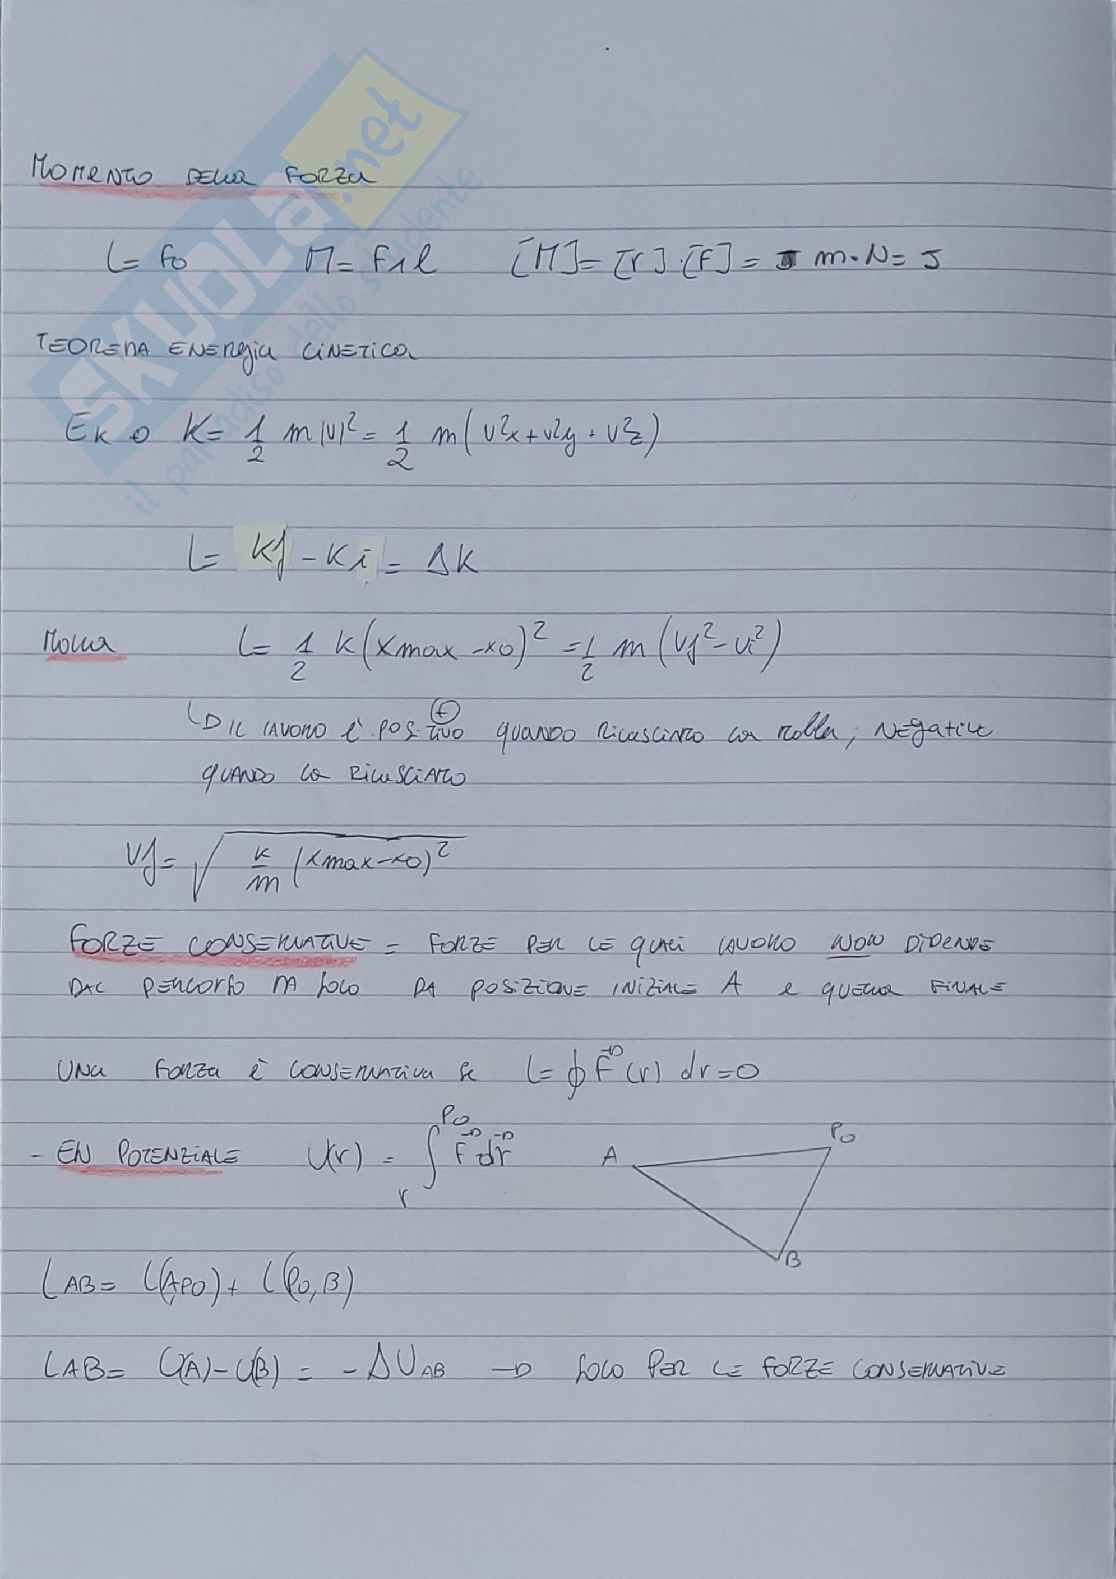 SKUOLA.net
il paradiso dello studente
MOMENTO DELLA FORZA
L= F0 M= F∧l [M]=[r]·[F]= m·N= J
TEOREMA ENERgia CINETICA
EK O K= 1/2 m|v|²= 1/2 m(v²x+v²y+v²z)
L= Kf - Ki = ΔK
MOLLA L= 1/2 K(xmax-x0)² = 1/2 m(vf²-vi²)
↳ IL LAVORO è POSITIVO (+) quando RILASCIATO LA MOLLA; NEgATIVE
quANDO LA RILASCIATO
Vf= √ K/m (xmax-x0)²
FORZE CONSERVATIVE = FORZE PER LE quALI LAVORO NON DIPENDE
DAL PERCORSO MA SOLO DA POSIZIONE INIZIALE A e quELLA FINALE
UNA FORZA è CONSERVATIVA se L= ∮ F→(r) dr=0
- EN POTENZIALE U(r) = ∫ r P0 F→ dr→
A P0 B
LAB= L(A,P0)+ L(P0,B)
LAB= U(A)-U(B) = -ΔUAB → SOLO PER LE FORZE CONSERVATIVE